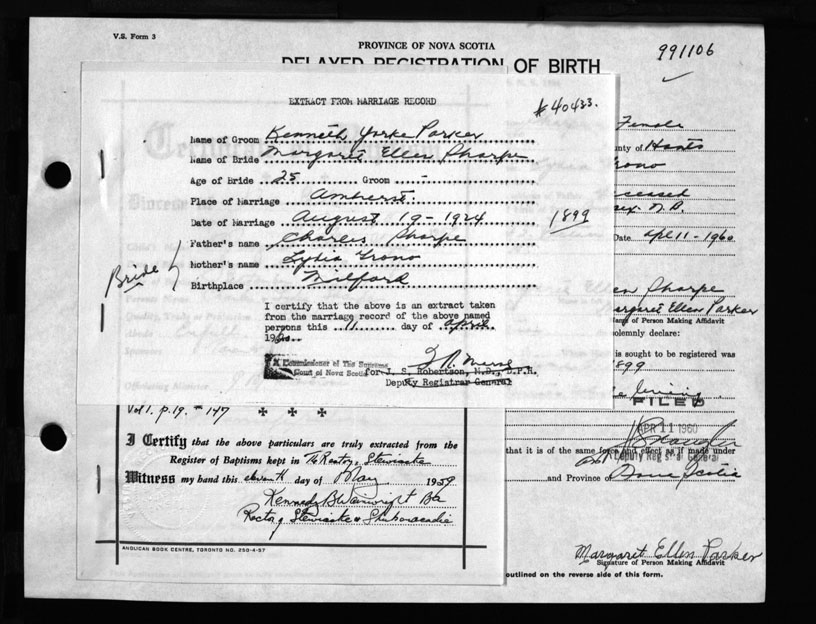 V.S. Form 3
PROVINCE OF NOVA SCOTIA
991106
DELAYED REGISTRATION OF BIRTH
EXTRACT FROM MARRIAGE RECORD
#40433.
Name of Groom Kenneth Yorke Parker
Name of Bride Margaret Ellen Sharpe
Age of Bride 25 Groom -
Place of Marriage Amherst.
Date of Marriage August 19-1924
1899
Father's name Charles Sharpe
Mother's name Lydia Grono
Birthplace Milford
Bride
I certify that the above is an extract taken
from the marriage record of the above named
persons this 11 day of April
1960
A Commissioner of The Supreme
Court of Nova Scotia
for J. S. Robertson, M.D., D.P.H.
Deputy Registrar General
Female
County of Hants
Grono
Deceased
N.B.
Date Apl 11-1960
Ellen Sharpe
Margaret Ellen Parker
Name of Person Making Affidavit
solemnly declare:
is sought to be registered was
1899
FILED
APR 11 1960
Deputy Registrar General
that it is of the same force and effect as if made under
and Province of Nova Scotia
Vol 1. p. 19. #147
I Certify that the above particulars are truly extracted from the
Register of Baptisms kept in The Rectory, Stewiacke
Witness my hand this eleventh day of May 1959
Kennedy B. Wainwright BA
Rector of Stewiacke & Shubenacadie
ANGLICAN BOOK CENTRE, TORONTO NO. 250-4-57
Margaret Ellen Parker
Signature of Person Making Affidavit
outlined on the reverse side of this form.